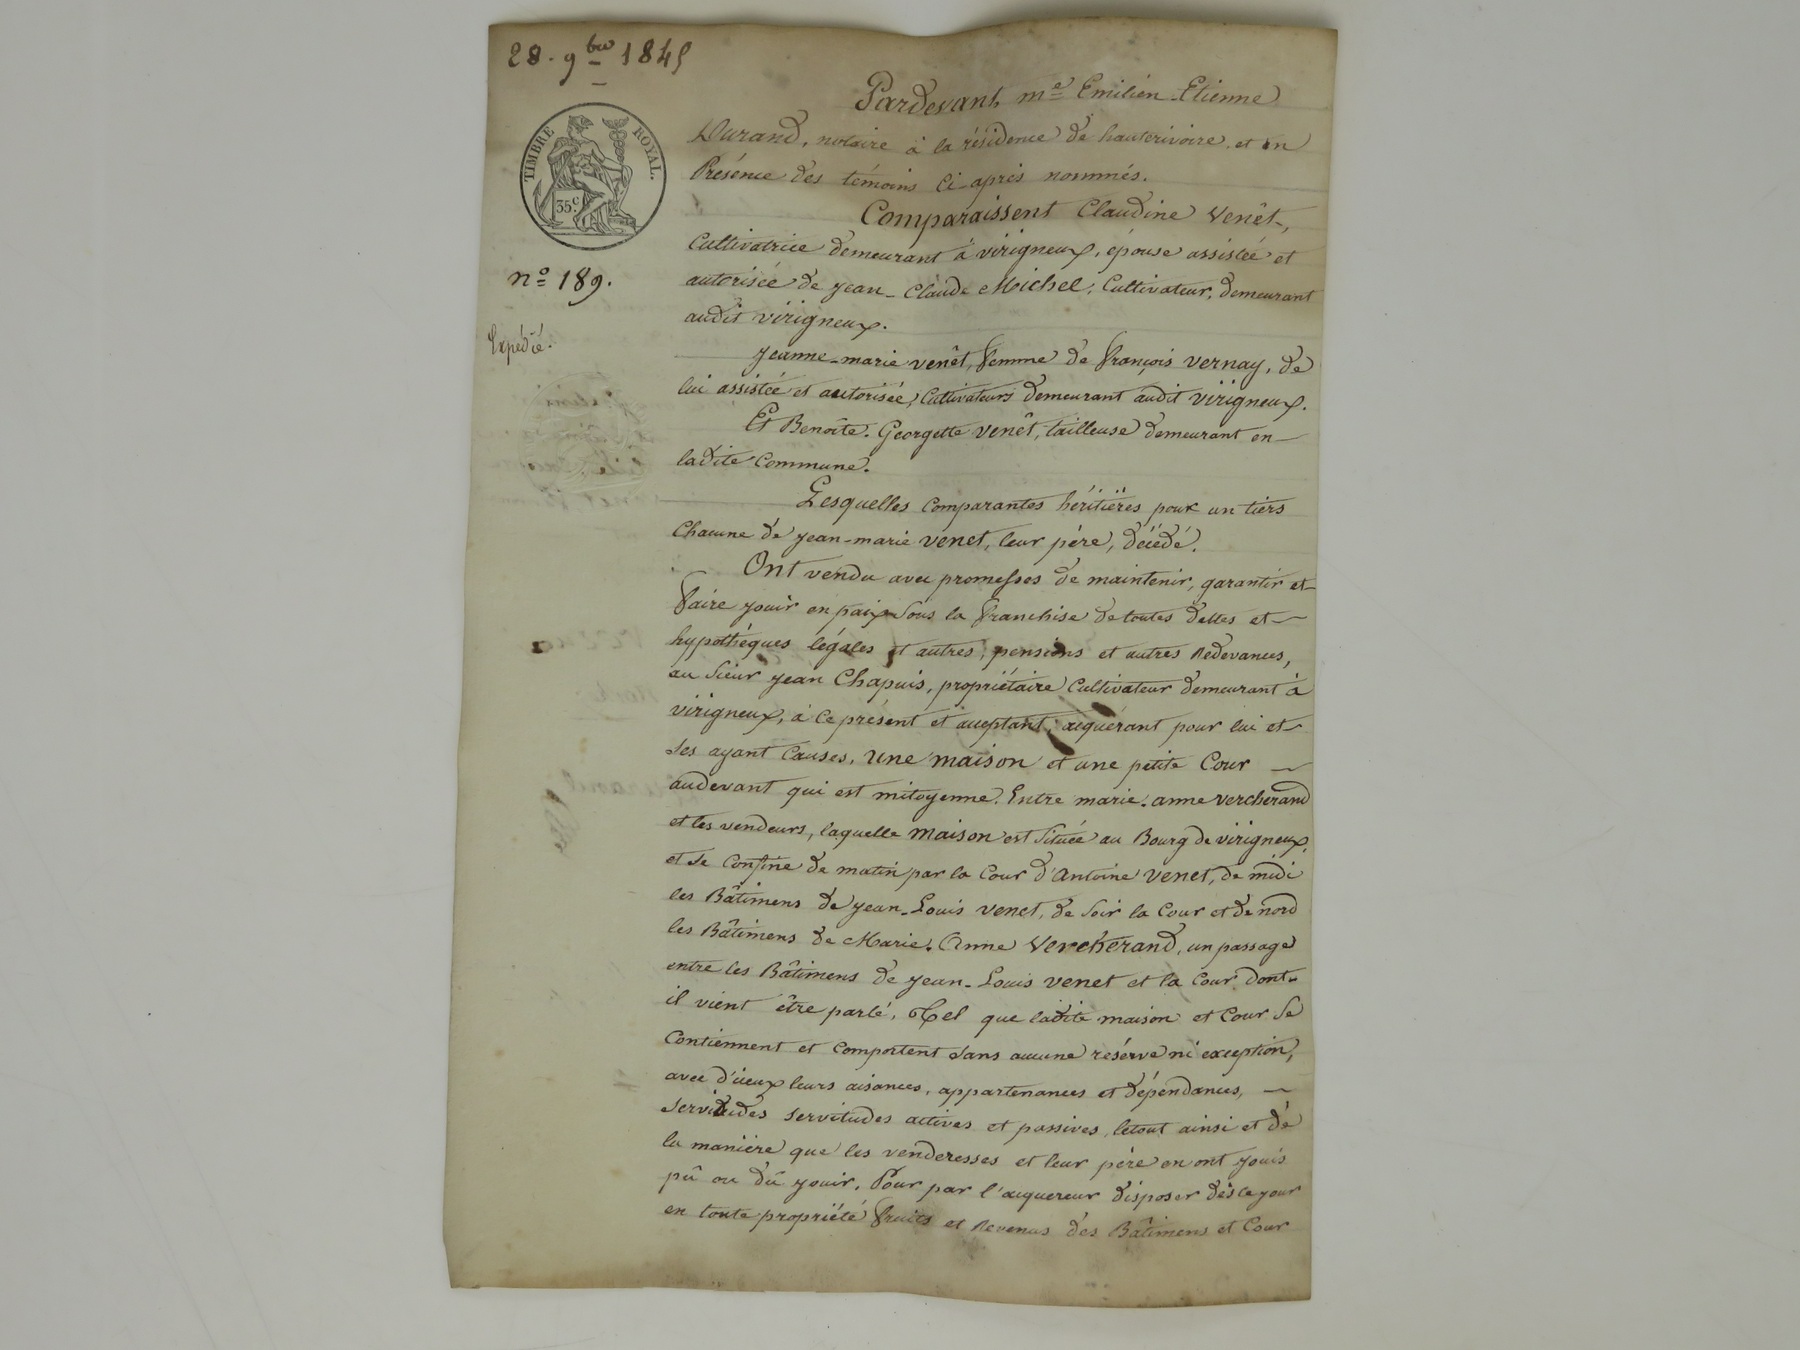 28. 9bre 1845
TIMBRE ROYAL.
35c.
no 189.
Expédié.
Pardevant me Emilien-Etienne
Durand, notaire à la résidence de hauterivoire et en
Présence des témoins Ci-après nommés.
Comparaissent Claudine Venêt,
Cultivatrice demeurant à virigneux, épouse assistée et
autorisée de jean-Claude Michel, Cultivateur, demeurant
audit virigneux.
jeanne-marie venêt, femme de françois vernay, de
lui assistée et autorisée, Cultivateurs demeurant audit virigneux.
Et Benoite. Georgette venêt, tailleuse demeurant en
ladite Commune.
Lesquelles Comparantes héritières pour un tiers
Chacune de jean-marie venet, leur père, décédé.
Ont vendu avec promesses de maintenir, garantir et
faire jouir en paix sous la franchise de toutes dettes et
hypothéques légales et autres, pensions et autres Redevances,
au sieur jean Chapuis, propriétaire Cultivateur demeurant à
virigneux, à Ce présent et acceptant, acquérant pour lui et
ses ayant Causes, une maison et une petite Cour
audevant qui est mitoyenne. Entre marie. anne vercherand
et les vendeurs, laquelle maison est située au Bourg de virigneux,
et se Confine de matin par la Cour d'Antoine venet, de midi
les Bâtimens de jean-Louis venet, de soir la Cour et de nord
les Bâtimens de Marie. Anne Vercherand, un passage
entre les Bâtimens de jean-Louis venet et la Cour dont
il vient être parlé, Tel que ladite maison et Cour se
Contiennent et Comportent sans aucune réserve ni exception,
avec d'iceux leurs aisances, appartenances et dépendances,
servitudes servitudes actives et passives, letout ainsi et de
la manière que les venderesses et leur père en ont jouis
pû ou dû jouir. Pour par l'acquereur disposer dès ce jour
en toute propriété fruits et Revenus des Bâtimens et Cour